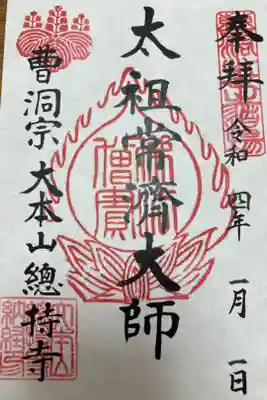 奉拜
令和四年一月一日
太祖常濟大師
曹洞宗大本山總持寺